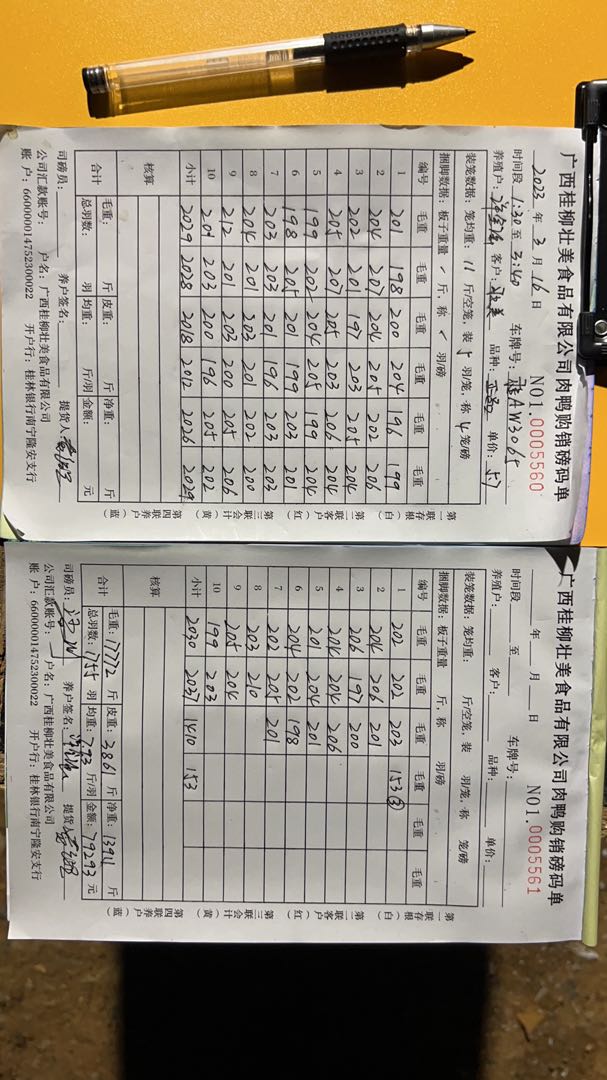 广西桂柳壮美食品有限公司肉鸭购销磅码单
2023 年 3 月 16 日 NO1.0005560
时间段 1:30 至 3:40 车牌号: AW3065
养殖户: 客户: 品种: 单价: 57
装笼数据: 笼均重: 11 斤/空笼, 装 5 羽/笼, 称 4 笼/磅
捆脚数据: 板子重量 斤, 称 羽/磅
编号 毛重 毛重 毛重 毛重 毛重 毛重
1 201 198 200 204 196 199
2 204 207 204 205 202 206
3 202 201 197 203 205 204
4 205 207 205 203 206 204
5 199 202 204 205 199 204
6 198 205 201 199 203 201
7 203 203 201 196 203 203
8 204 201 203 201 202 200
9 212 201 203 200 205 206
10 201 203 200 196 205 202
小计 2029 2028 2018 2012 2026 2029
核算
合计 毛重: 斤 皮重: 斤 净重: 斤
总羽数: 羽 均重: 斤/羽 金额: 元
司磅员: 养户签名: 提货人
公司汇款账号: 户名: 广西桂柳壮美食品有限公司
账户: 660000014752300022 开户行: 桂林银行南宁隆安支行
第一联存根(白) 第二联客户(红) 第三联会计(黄) 第四联养户(蓝)
广西桂柳壮美食品有限公司肉鸭购销磅码单
年 月 日 NO1.0005561
时间段 至 车牌号:
养殖户: 客户: 品种: 单价:
装笼数据: 笼均重: 斤/空笼, 装 羽/笼, 称 笼/磅
捆脚数据: 板子重量 斤, 称 羽/磅
编号 毛重 毛重 毛重 毛重 毛重 毛重
1 202 202 203 153③
2 204 206 201
3 206 197 200
4 204 204 206
5 201 204 201
6 204 202 198
7 202 205 201
8 203 210
9 205 204
10 199 203
小计 2030 2037 1410 153
核算
合计 毛重: 17772 斤 皮重: 3861 斤 净重: 13911 斤
总羽数: 1755 羽 均重: 7.93 斤/羽 金额: 79293 元
司磅员: 养户签名: 提货人
公司汇款账号: 户名: 广西桂柳壮美食品有限公司
账户: 660000014752300022 开户行: 桂林银行南宁隆安支行
第一联存根(白) 第二联客户(红) 第三联会计(黄) 第四联养户(蓝)